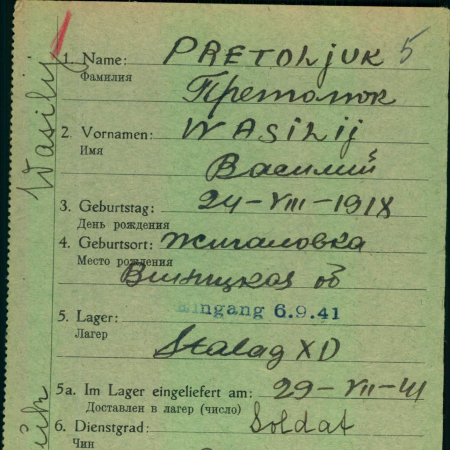 1. Name: PRETOLJUK 5
Фамилия
Претолюк
2. Vornamen: WASILIJ
Имя
Василий
3. Geburtstag: 24-VIII-191X
День рождения
4. Geburtsort: Жигаловка
Место рождения
Виницкая об
Eingang 6.9.41
5. Lager:
Лагерь
Stalag XD
5a. Im Lager eingeliefert am: 29-VII-41
Доставлен в лагерь (число)
6. Dienstgrad: Soldat
Чин
Wasilij